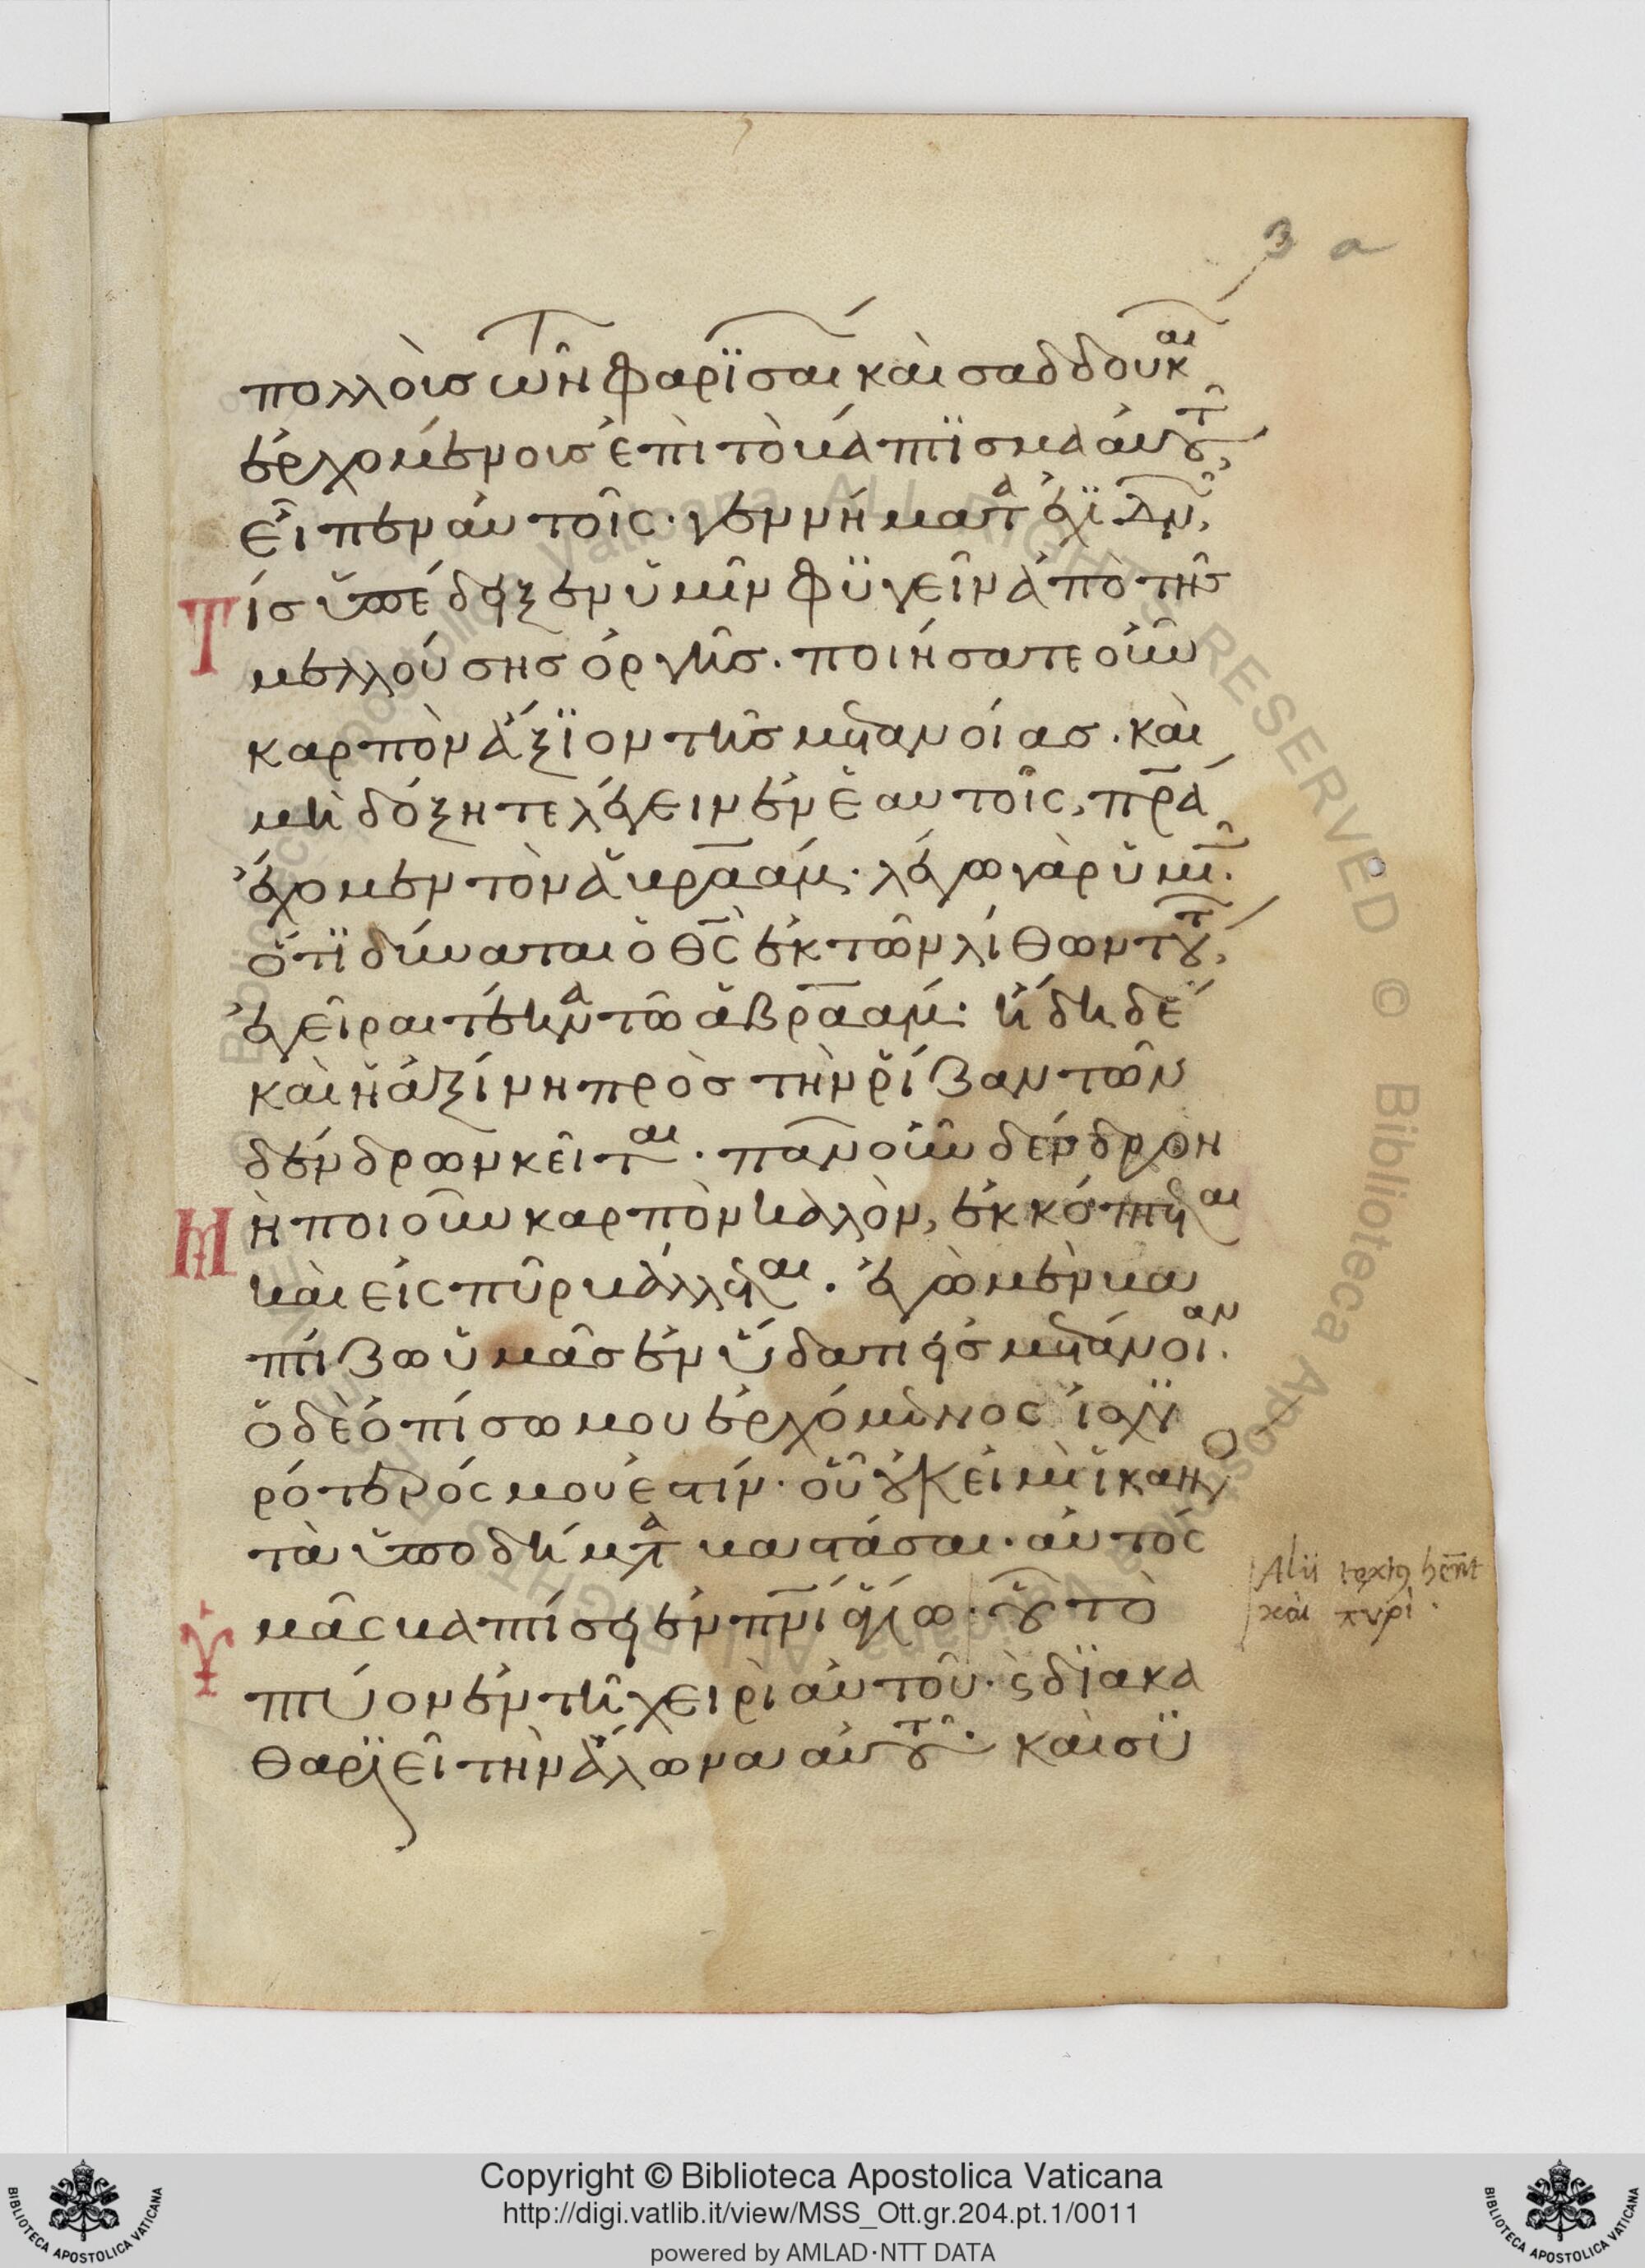 3 a
πολλοὺς τῶν φαρϊσαί καὶ σαδδουκαι
ἐρχομένους ἐπὶ τὸ βάπτϊσμα αὐτοῦ,
εἶπεν αὐτοῖς· γεννήματα ἐχϊδν,
Τίς ὑπέδειξεν ὑμῖν φϋγεῖν ἀπὸ τῆς
μελλούσης ὀργῆς. ποιήσατε οὖν
καρπὸν ἄξϊον τῆς μετανοίας. καὶ
μὴ δόξητε λέγειν ἐν ἑαυτοῖς, πρα
ἔχομεν τὸν ἀβραάμ· λέγω γὰρ ὑμῖ.
ὅτϊ δύναται ὁ θς ἐκ τῶν λίθων τούτ,
ἐγεῖραι τέκνα τῶ ἀβραάμ· ἤδη δὲ
καὶ ἡ ἀξίνη πρὸς τὴν ῥίζαν τῶν
δένδρων κεῖται. πᾶν οὖν δένδρον
Μὴ ποιοῦν καρπὸν καλὸν, ἐκκόπτεται
καὶ εἰς πῦρ βάλλεται. ἐγὼ μὲν βα
πτίζω ὑμᾶς ἐν ὕδατι εἰς μετάνοιαν.
ὁ δὲ ὀπίσω μου ἐρχόμενος ἰσχϋ
ρότερός μου ἐστίν· οὗ οὐκ εἰμὶ ἱκανὸ
τὰ ὑποδήματα βαστάσαι. αὐτὸς
Ὑμᾶς βαπτίσει ἐν πνι ἁγίω. οὗ τὸ
πτύον ἐν τῆ χειρὶ αὐτοῦ. ϛ δϊακα
θαρϊεῖ τὴν ἅλωνα αὐτοῦ· καὶ συ
Alii textus hent
καὶ πυρὶ.
Biblioteca Apostolica Vaticana ALL RIGHTS RESERVED ©
BIBLIOTECA APOSTOLICA VATICANA
Copyright © Biblioteca Apostolica Vaticana
http://digi.vatlib.it/view/MSS_Ott.gr.204.pt.1/0011
powered by AMLAD·NTT DATA
BIBLIOTECA APOSTOLICA VATICANA